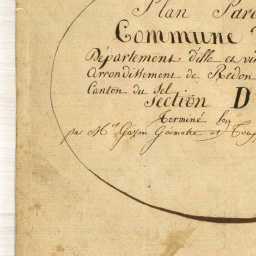 Plan Par
Commune
Département d'Ille et Vi
Arrondissement de Redon
Canton du Sel
Section D
Terminé
par Mrs et